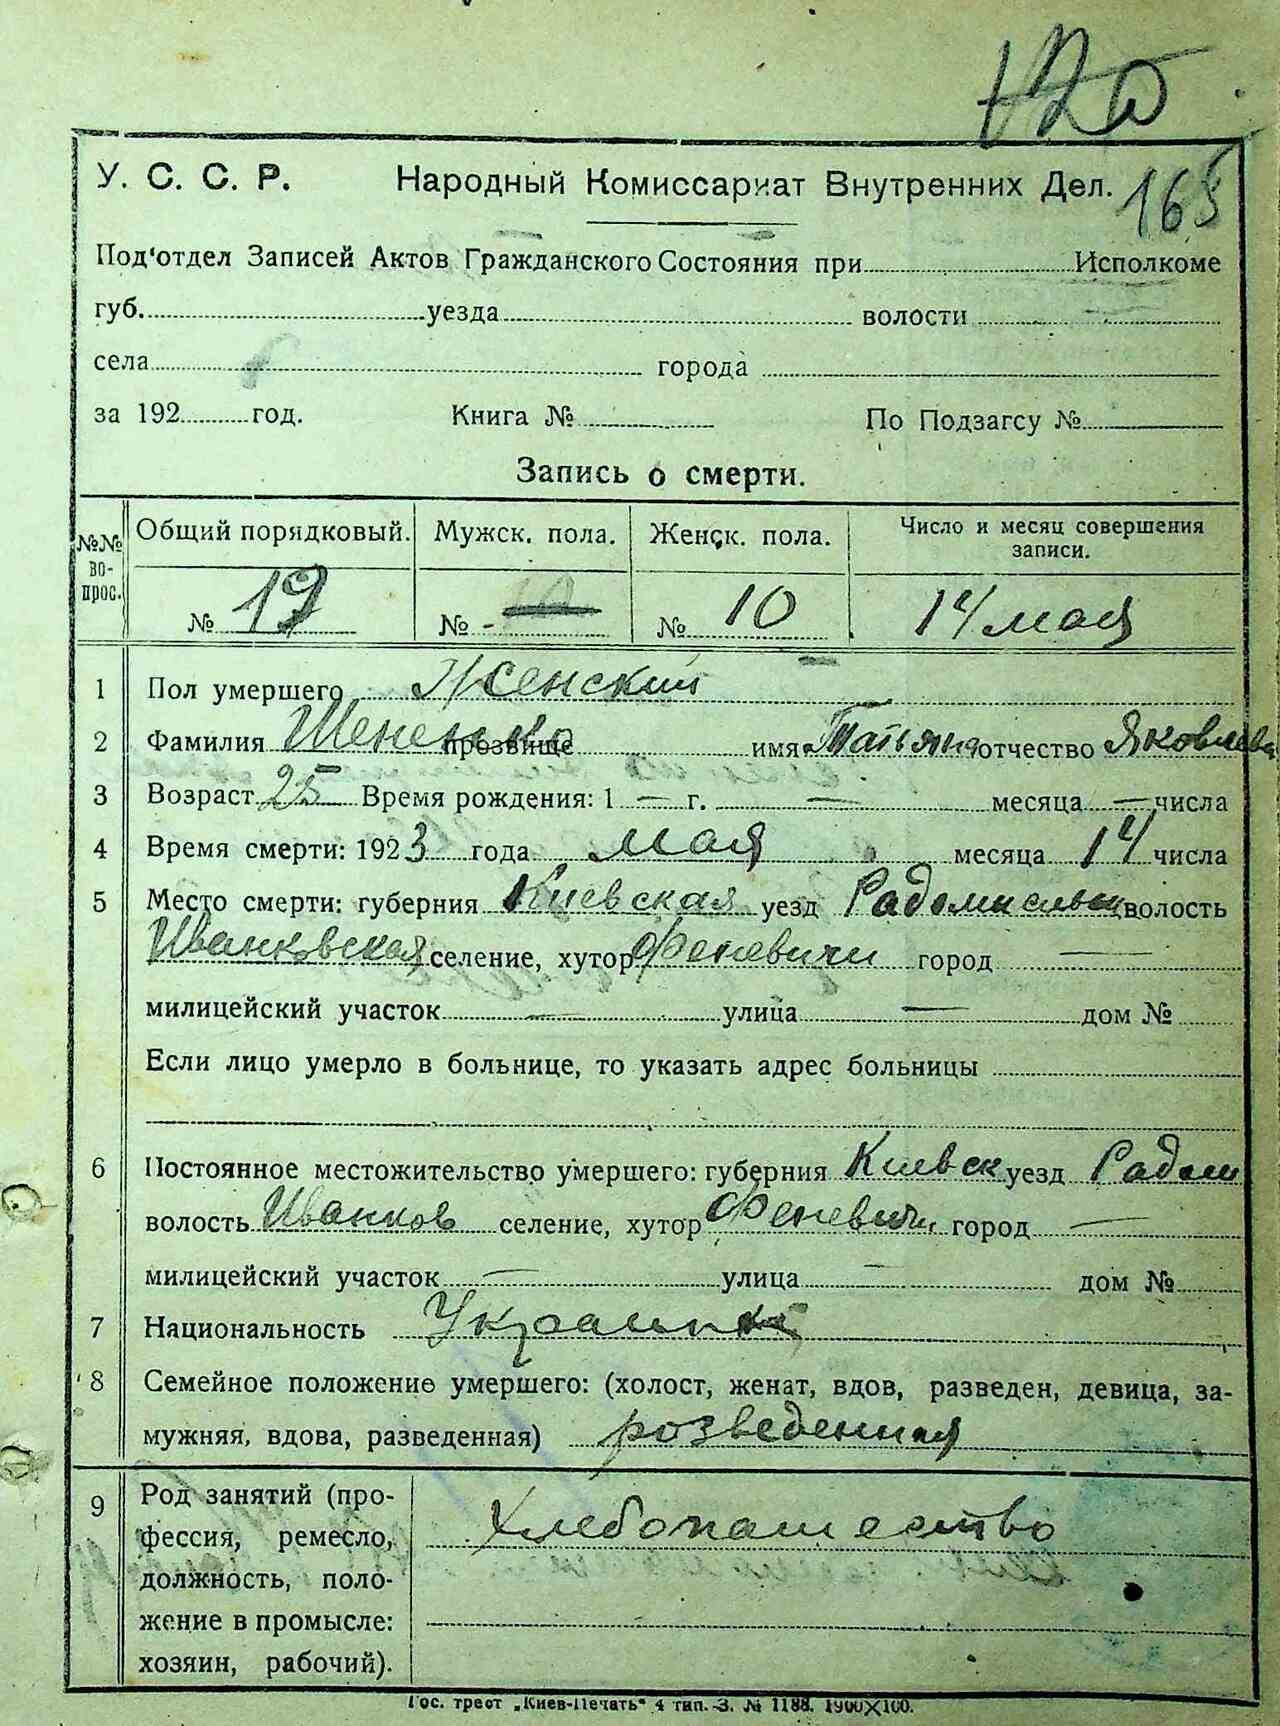 165
У. С. С. Р. Народный Комиссариат Внутренних Дел.
Под'отдел Записей Актов Гражданского Состояния при Исполкоме
губ. уезда волости
села города
за 192 год. Книга № По Подзагсу №
Запись о смерти.
№№ вопрос. Общий порядковый. Мужск. пола. Женск. пола. Число и месяц совершения записи.
№ 19 № - № 10 14 мая
1 Пол умершего Женский
2 Фамилия прозвище имя Татьяна отчество Яковлева
3 Возраст 25 Время рождения: 1 — г. — месяца — числа
4 Время смерти: 1923 года мая месяца 14 числа
5 Место смерти: губерния Киевская уезд Радомисльск волость
Иванковская селение, хутор Феневичи город —
милицейский участок — улица — дом №
Если лицо умерло в больнице, то указать адрес больницы
6 Постоянное местожительство умершего: губерния Киевск уезд Радом
волость Иванков селение, хутор Феневичи город —
милицейский участок — улица — дом №
7 Национальность Украинка
8 Семейное положение умершего: (холост, женат, вдов, разведен, девица, за-
мужняя, вдова, разведенная) розведенная
9 Род занятий (про-
фессия, ремесло, Хлебопашество
должность, поло-
жение в промысле:
хозяин, рабочий).
Гос. трест „Киев-Печать" 4 тип. З. № 1188. 1900X100.